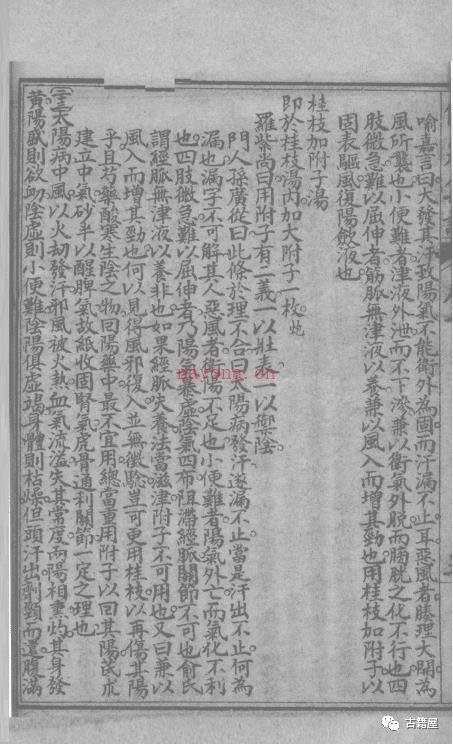 喻嘉言曰大發其汗致陽氣不能衛外為固而汗漏不止耳惡風者腠理大開為
風所襲也小便難者津液外泄而不下滲兼以衛氣外脫而膀胱之化不行也四
肢微急難以屈伸者筋脈無津液以養兼以風入而增其勁也用桂枝加附子以
固表驅風復陽斂液也
桂枝加附子湯
即於桂枝湯內加大附子一枚炮
羅紫尚曰用附子有二義一以壯表一以禦陰
門人孫廣從曰此條於理不合曰太陽病發汗遂漏不止當是汗出不止何為
漏也漏字不可解其人惡風者衛陽不足也小便難者陽氣外亡而氣化不利
也四肢微急難以屈伸者乃陽氣衰虛陰氣四布阻滯經脈關節不可也俞氏
謂經脈無津液以養非也如果經脈失養法當滋津附子不可用也又曰兼以
風入而增其勁也何以見得風邪復入並無徵驗豈可更用桂枝以再傷其陽
乎且芍藥酸寒生陰之物回陽藥中最不宜用總當重用附子以回其陽芪朮
建立中氣砂半以醒脾氣故紙收固腎氣虎骨通利關節一定之理也
(二三)太陽病中風以火劫發汗邪風被火熱血氣流溢失其常度兩陽相熏灼其身發
黃陽盛則欲衄陰虛則小便難陰陽俱虛竭身體則枯燥但頭汗出劑頸而還腹滿
nayona.cn
古籍屋